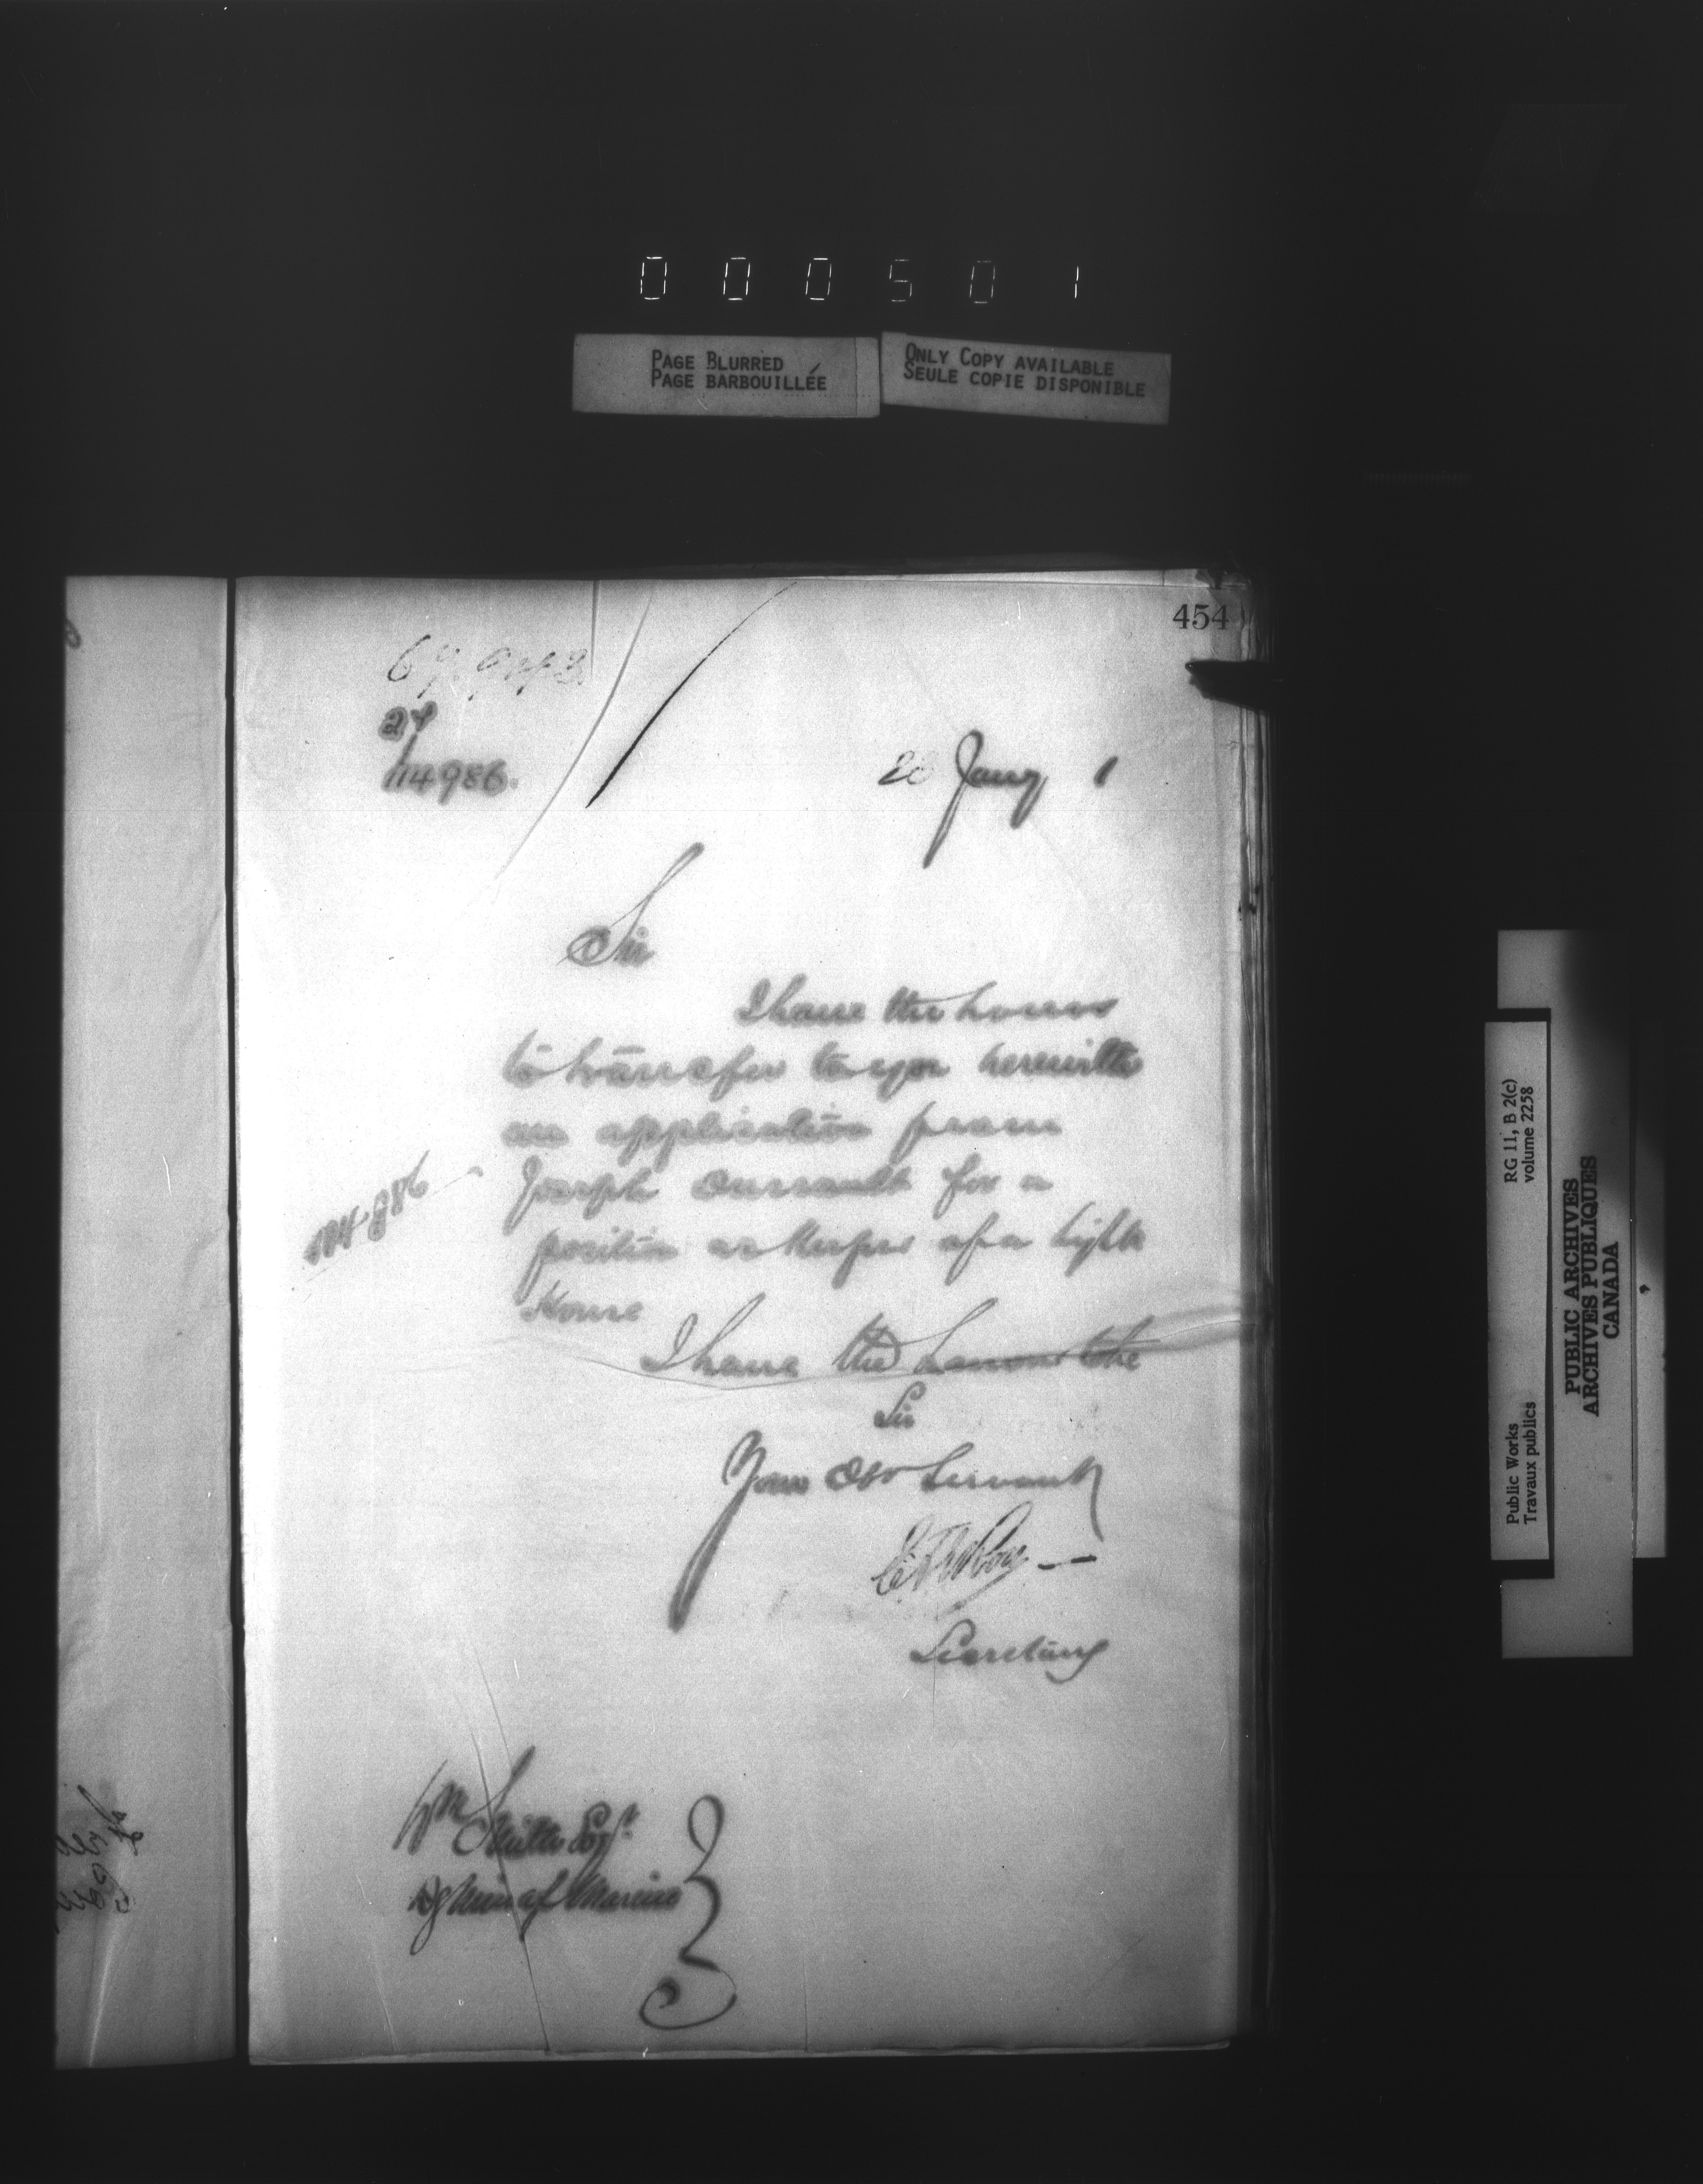 000501
PAGE BLURRED
PAGE BARBOUILLÉE
ONLY COPY AVAILABLE
SEULE COPIE DISPONIBLE
454
114986.
Jany 1
Sir
I have the honor
to transfer to you herewith
an application from
Joseph for a
position as Keeper of a light
House
I have the honor to be
Sir
Your Obt Servant
Secretary
Wm Smith Esqr
Dy Min of Marine
RG 11, B 2(c)
volume 2258
Public Works
Travaux publics
PUBLIC ARCHIVES
ARCHIVES PUBLIQUES
CANADA